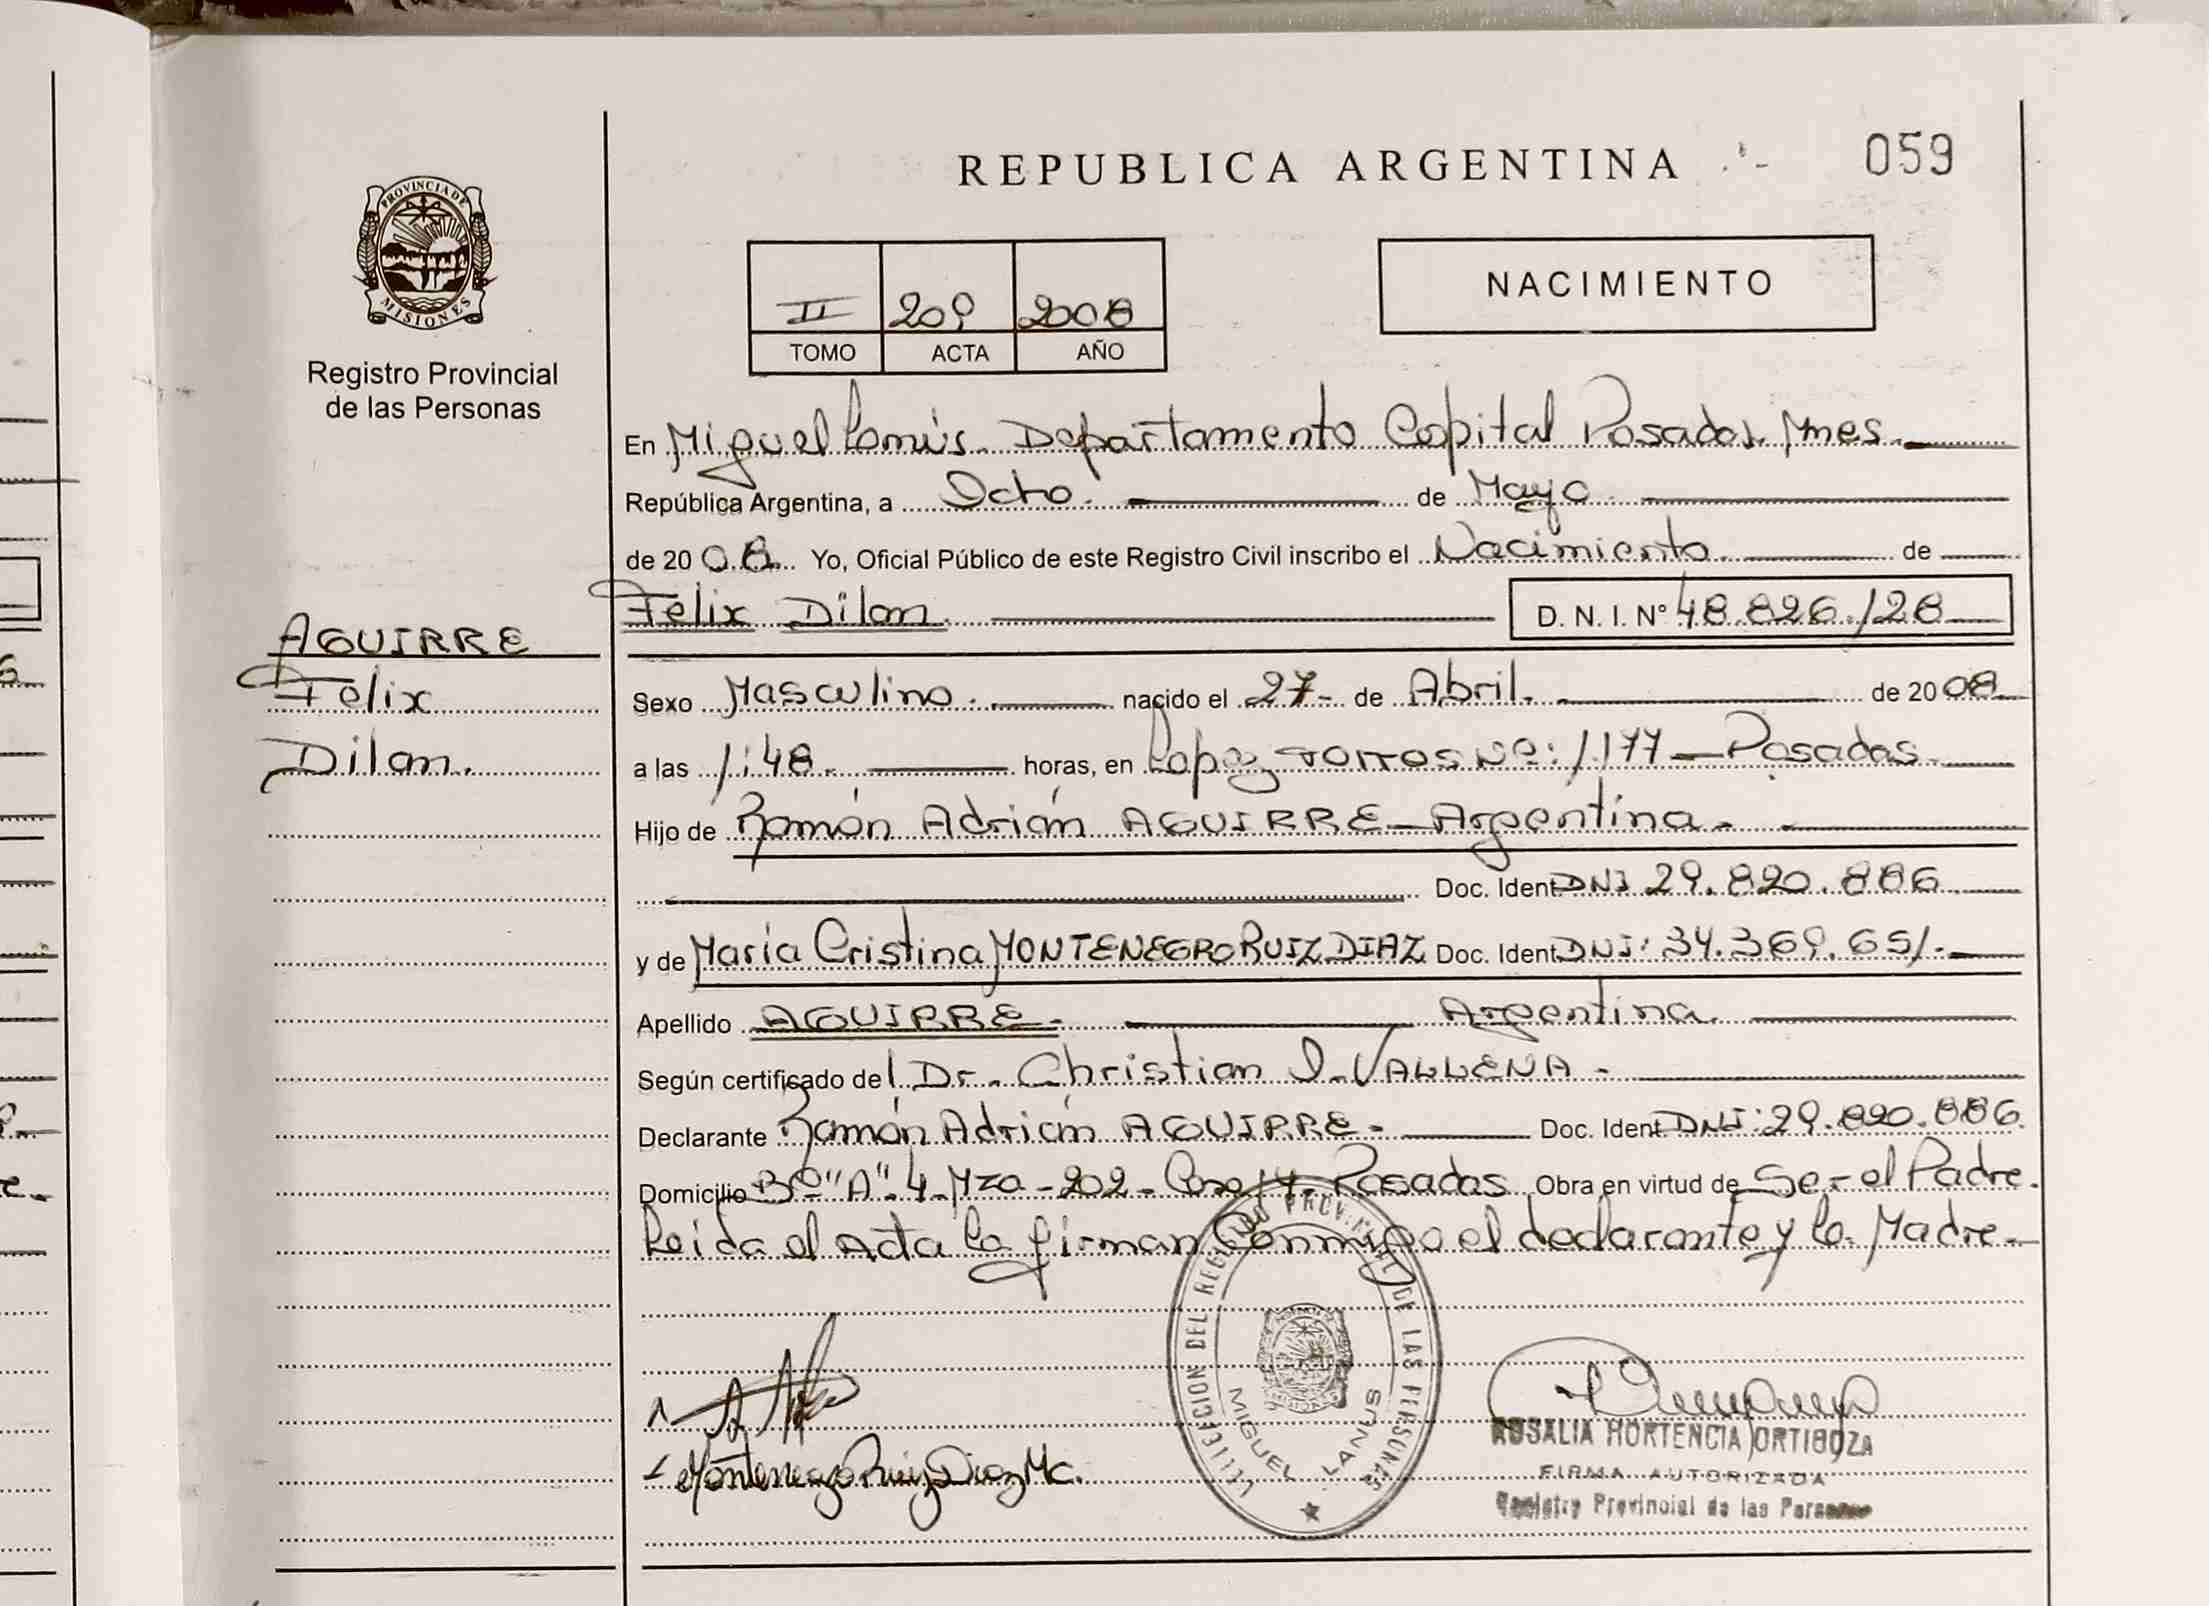 REPUBLICA ARGENTINA
059
PROVINCIA DE
MISIONES
Registro Provincial
de las Personas
NACIMIENTO
II 209 2008
TOMO ACTA AÑO
En Miguel Lanús. Departamento Capital Posadas. Mnes.
República Argentina, a Ocho. de Mayo.
de 20 08. Yo, Oficial Público de este Registro Civil inscribo el Nacimiento de
Felix Dilan. D. N. I. Nº 48.826.128
AGUIRRE
Felix
Dilan.
Sexo Masculino. nacido el 27 - de Abril. de 20 08
a las 1:48. horas, en Lopez Torres Nº: 1.177 - Posadas.
Hijo de Ramón Adrián AGUIRRE - Argentina.
Doc. Ident DNI 29.820.886
y de María Cristina MONTENEGRO RUIZ DIAZ Doc. Ident DNI: 34.369.651.-
Apellido AGUIRRE. Argentina.
Según certificado del Dr. Christian VALLENA.
Declarante Ramón Adrián AGUIRRE. Doc. Ident DNI: 29.820.886.
Domicilio Bº "A" 4 - Mza - 202 - Casa 14. Posadas Obra en virtud de Ser el Padre.
Leida el Acta la firman Conmigo el declarante y la Madre.
DEL REGISTRO PROVINCIAL DE LAS PERSONAS
MIGUEL LANUS
Montenegro Ruiz Diaz Mc.
ROSALIA HORTENCIA ORTIGOZA
FIRMA AUTORIZADA
Registro Provincial de las Personas